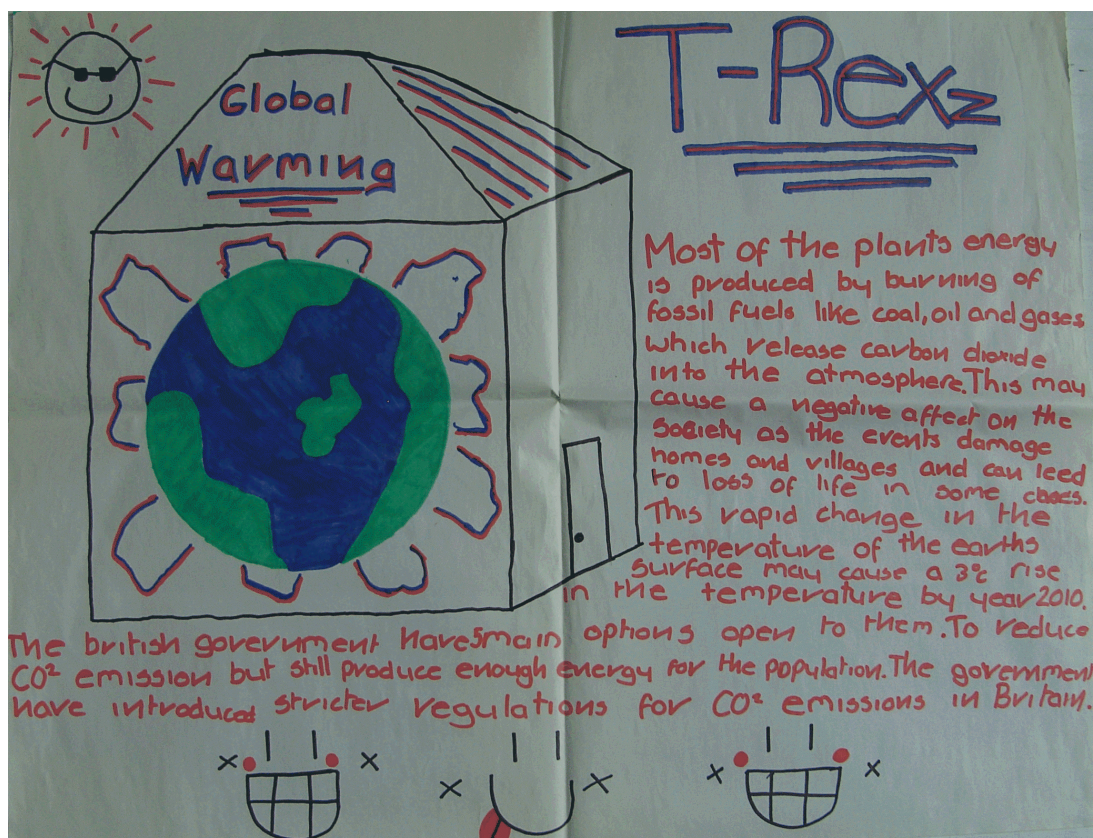 Global
Warming
T-Rexz
Most of the plants energy
is produced by burning of
fossil fuels like coal, oil and gases
which release carbon dioxide
into the atmosphere. This may
cause a negative affect on the
society as the events damage
homes and villages and can leed
to loss of life in some cases.
This rapid change in the
temperature of the earths
surface may cause a 3°c rise
in the temperature by year 2010.
The british government have 5 main options open to them. To reduce
CO² emission but still produce enough energy for the population. The government
have introduced stricter regulations for CO² emissions in Britain.